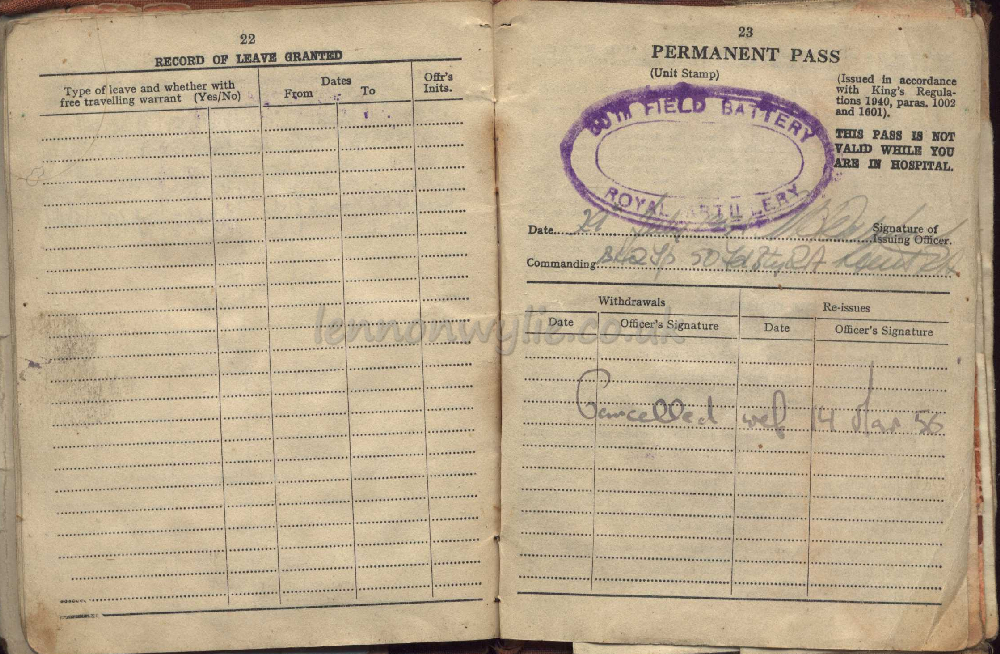 22
RECORD OF LEAVE GRANTED
Type of leave and whether with
free travelling warrant (Yes/No)
Dates
From To
Offr's
Inits.
23
PERMANENT PASS
(Unit Stamp)
(Issued in accordance
with King's Regula-
tions 1940, paras. 1002
and 1601).
THIS PASS IS NOT
VALID WHILE YOU
ARE IN HOSPITAL.
FIELD BATTERY
ROYAL ARTILLERY
Date
Signature of
Issuing Officer.
Commanding
Withdrawals
Re-issues
Date
Officer's Signature
Date
Officer's Signature
lennonwylie.co.uk
Cancelled wef 14 Mar 56